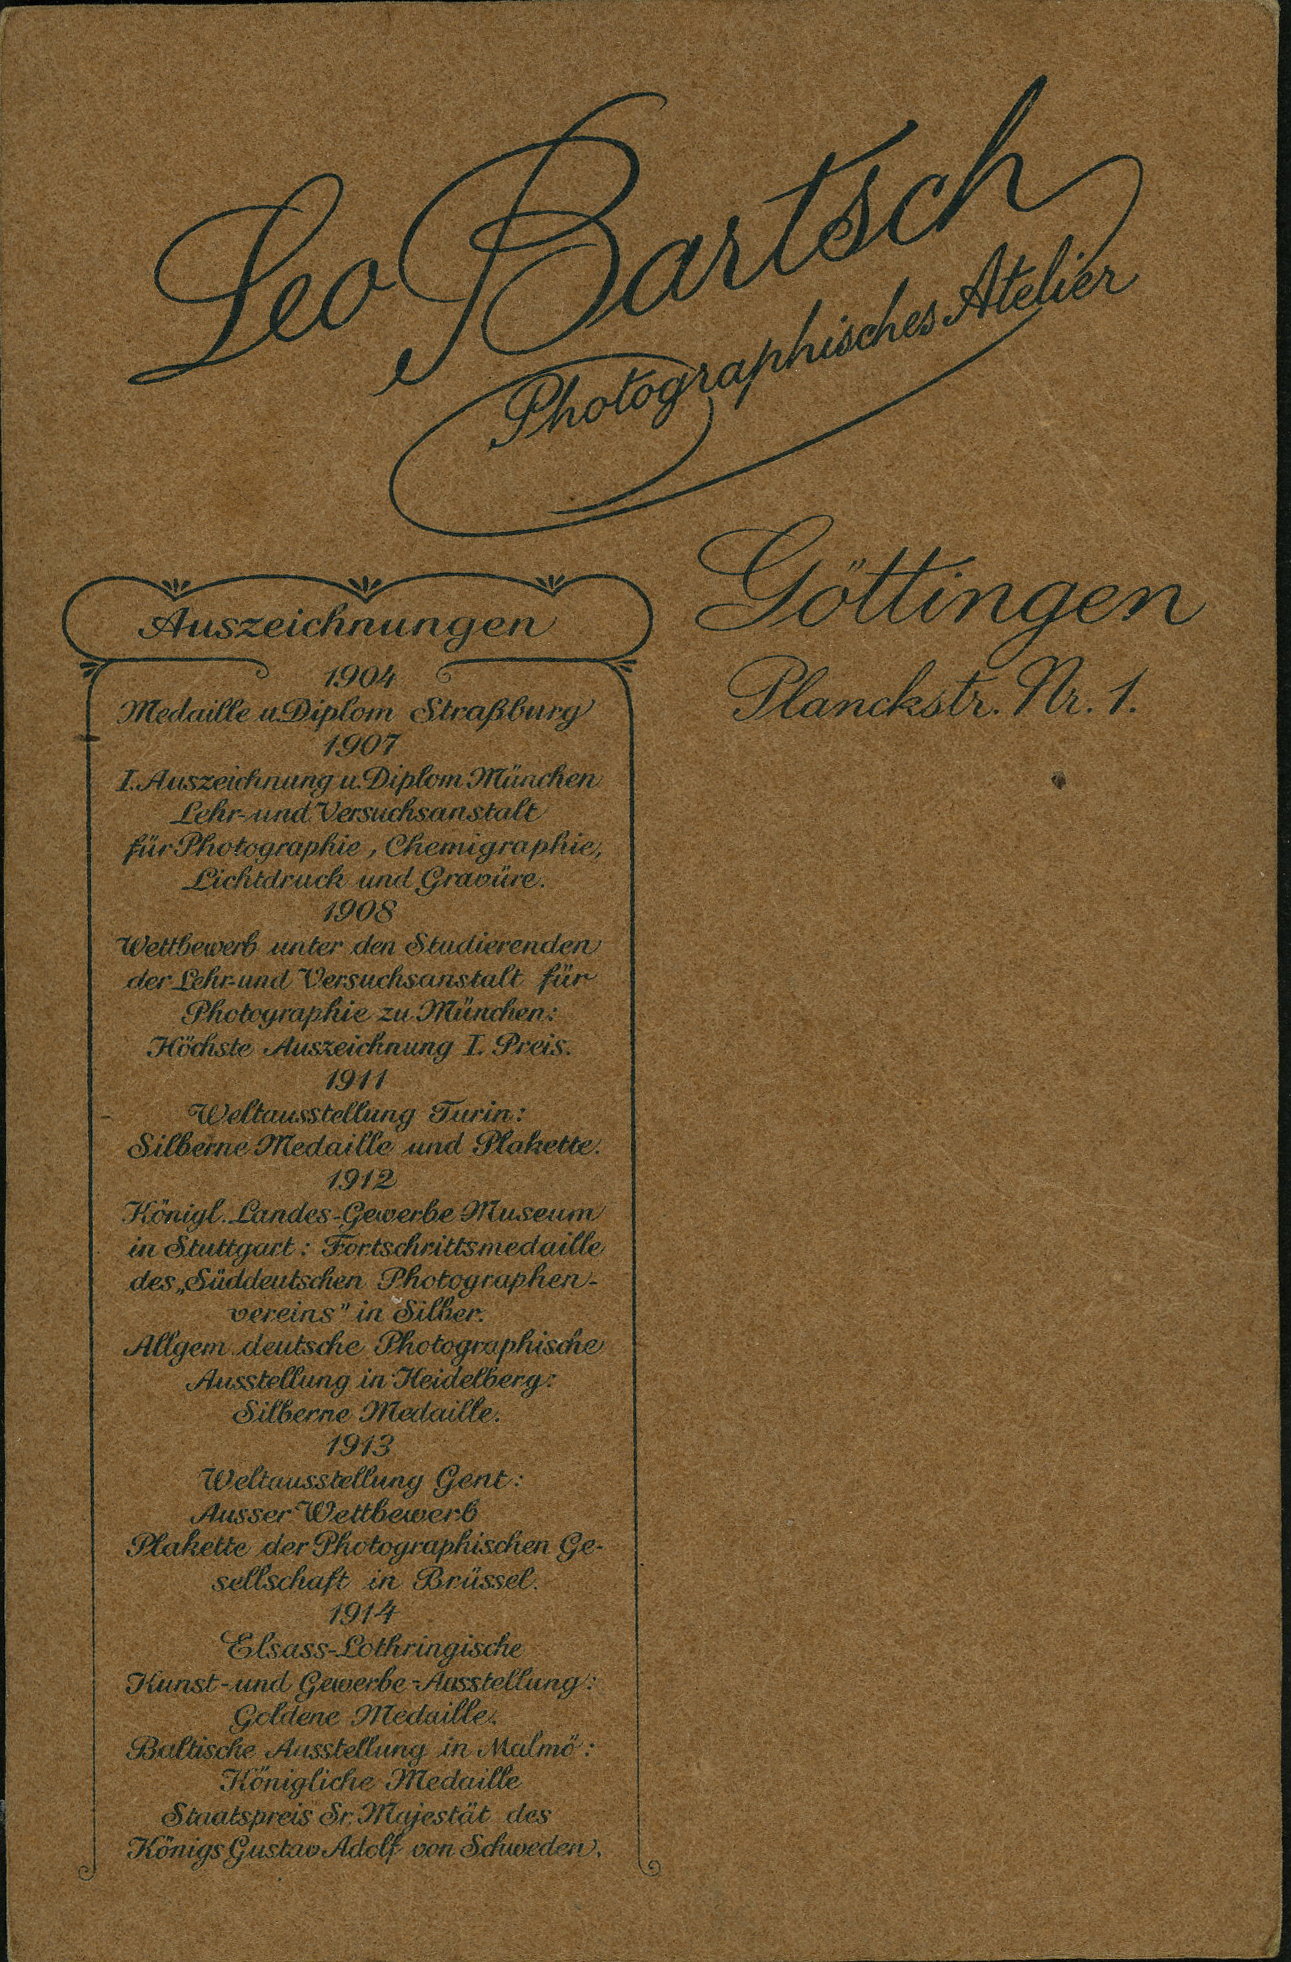 Leo Bartsch
Photographisches Atelier
Göttingen
Planckstr. Nr. 1.
Auszeichnungen
1904
Medaille u. Diplom Straßburg
1907
I. Auszeichnung u. Diplom München
Lehr- und Versuchsanstalt
für Photographie, Chemigraphie,
Lichtdruck und Gravüre.
1908
Wettbewerb unter den Studierenden
der Lehr- und Versuchsanstalt für
Photographie zu München:
Höchste Auszeichnung I. Preis.
1911
Weltausstellung Turin:
Silberne Medaille und Plakette.
1912
Königl. Landes-Gewerbe Museum
in Stuttgart: Fortschrittsmedaille
des „Süddeutschen Photographen-
vereins" in Silber.
Allgem. deutsche Photographische
Ausstellung in Heidelberg:
Silberne Medaille.
1913
Weltausstellung Gent:
Ausser Wettbewerb
Plakette der Photographischen Ge-
sellschaft in Brüssel.
1914
Elsass-Lothringische
Kunst- und Gewerbe-Ausstellung:
Goldene Medaille.
Baltische Ausstellung in Malmö:
Königliche Medaille
Staatspreis Sr. Majestät des
Königs Gustav Adolf von Schweden.